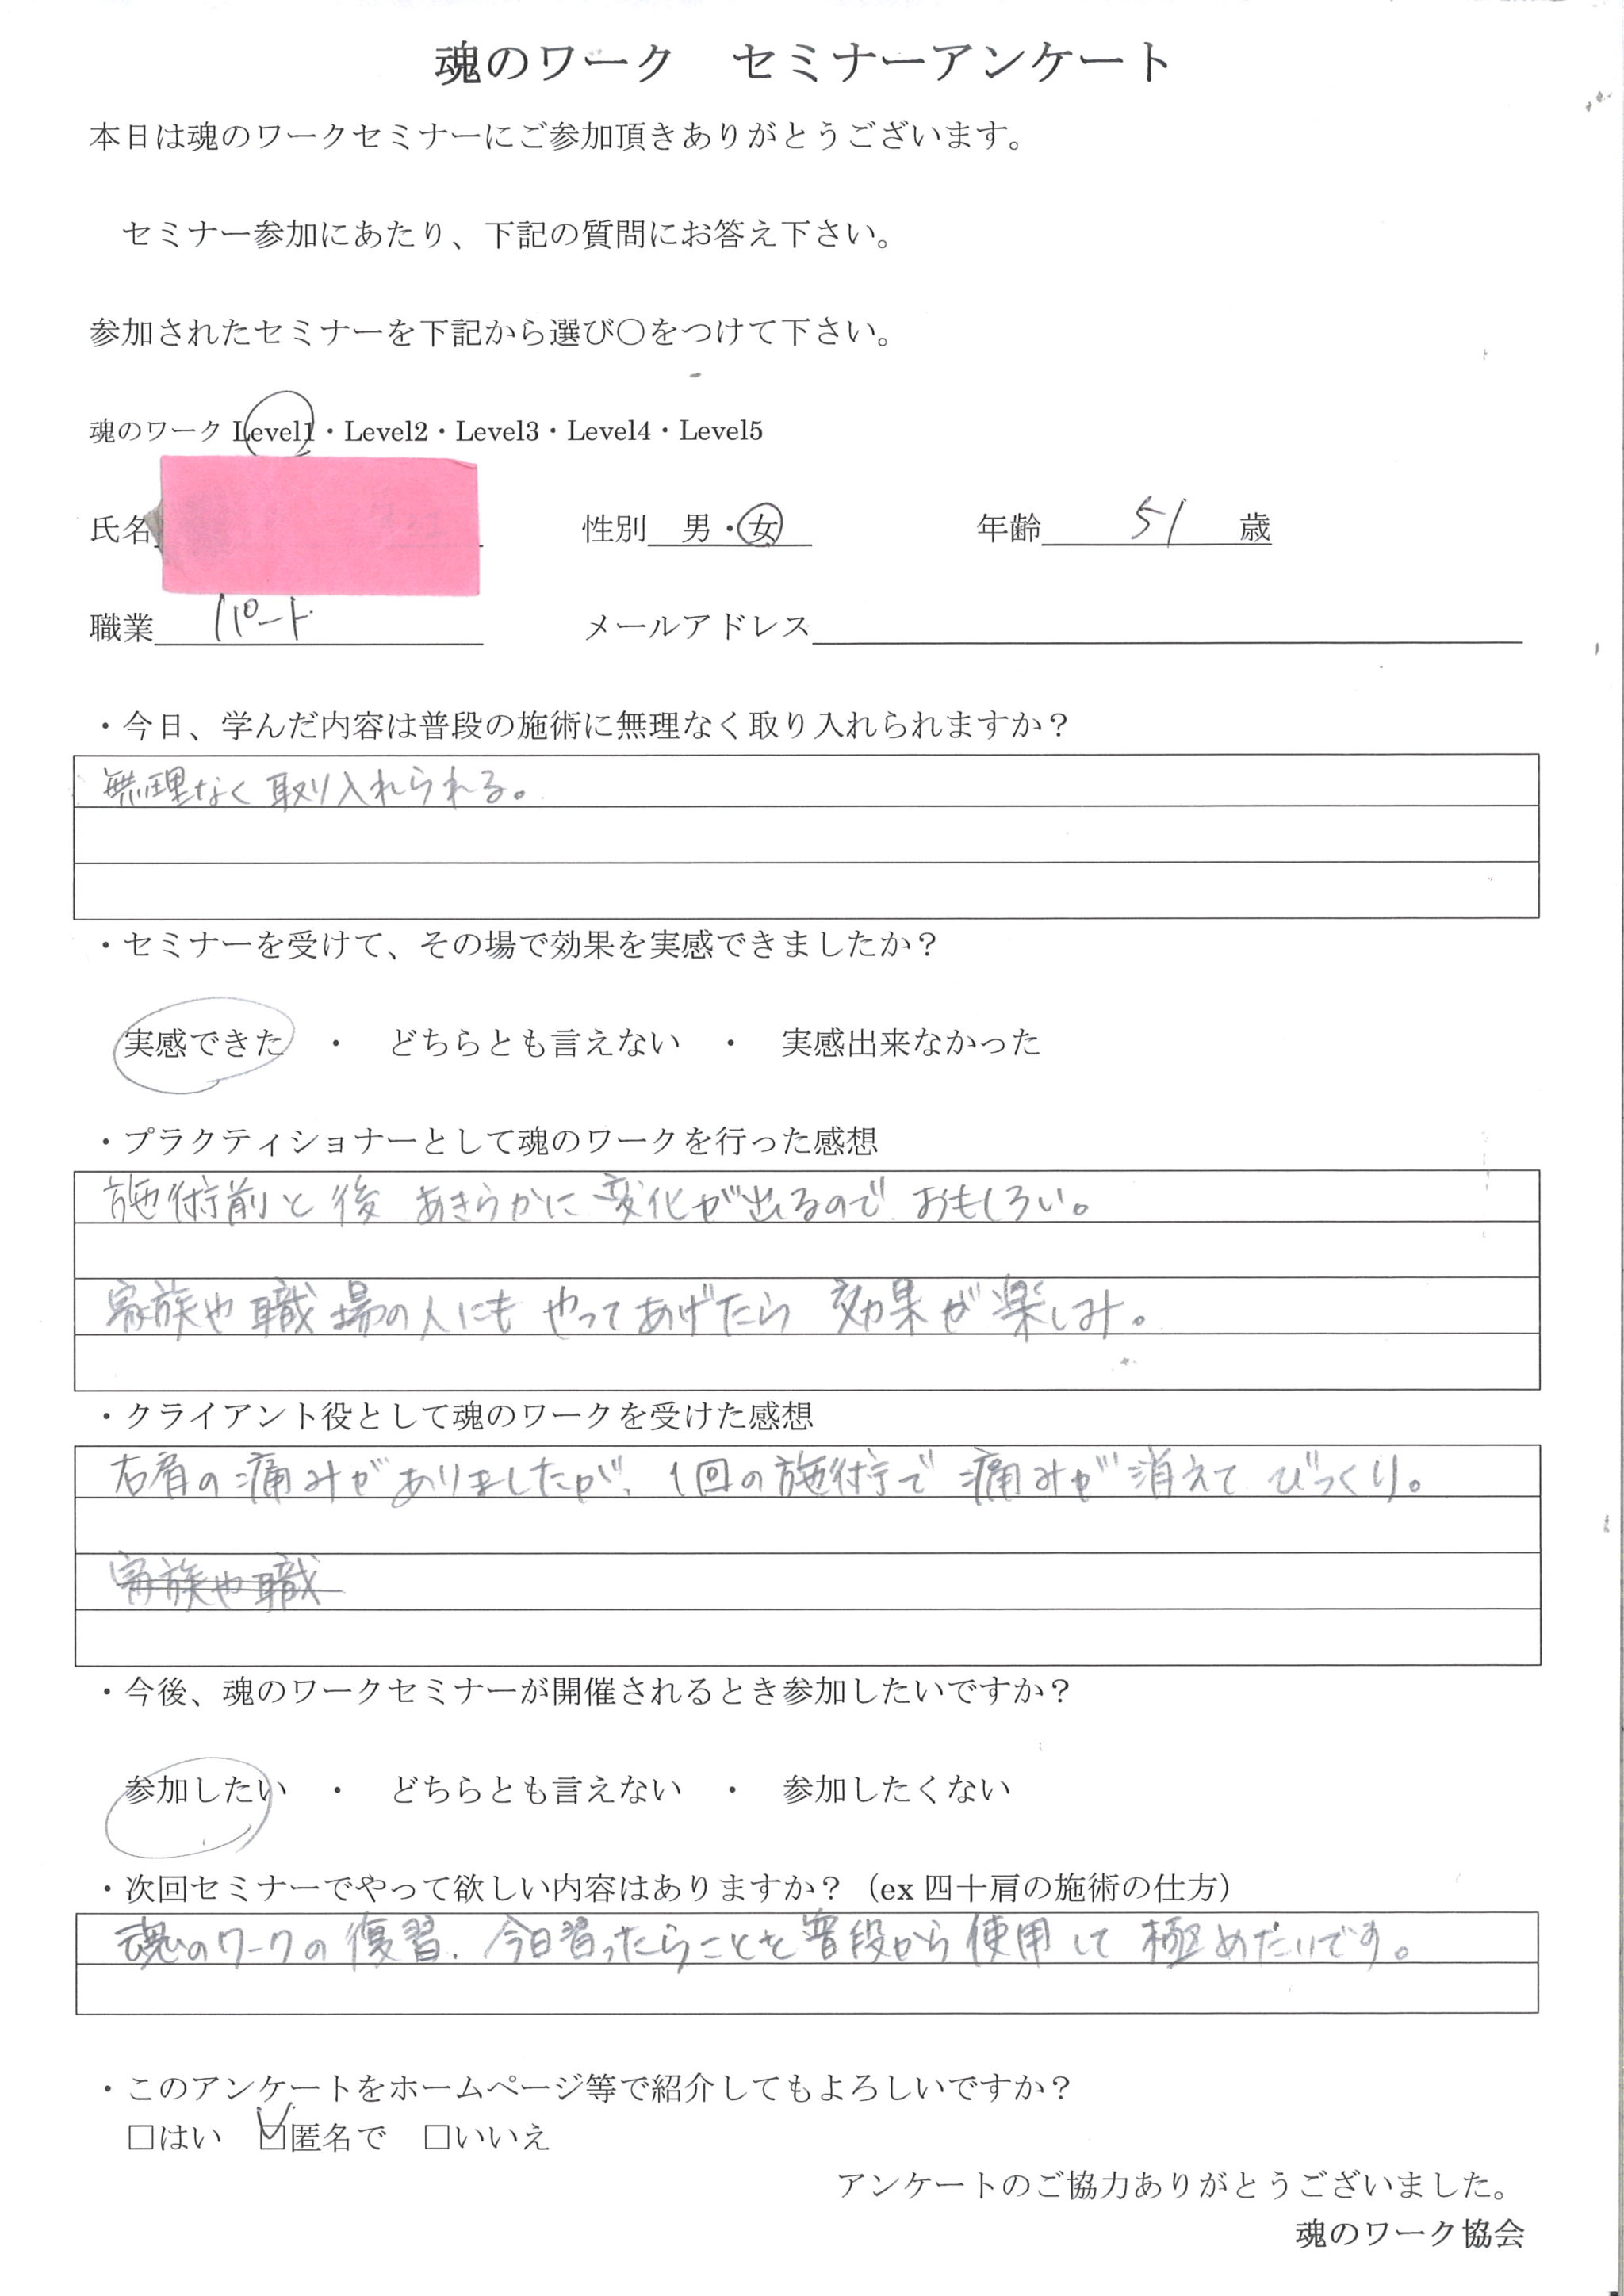 魂のワーク　セミナーアンケート
本日は魂のワークセミナーにご参加頂きありがとうございます。
セミナー参加にあたり、下記の質問にお答え下さい。
参加されたセミナーを下記から選び〇をつけて下さい。
魂のワーク Level1・Level2・Level3・Level4・Level5
氏名　性別　男・女　年齢　51　歳
職業　パート　メールアドレス
・今日、学んだ内容は普段の施術に無理なく取り入れられますか？
無理なく取り入れられる。
・セミナーを受けて、その場で効果を実感できましたか？
実感できた　・　どちらとも言えない　・　実感出来なかった
・プラクティショナーとして魂のワークを行った感想
施術前と後 あきらかに変化が出るので おもしろい。
家族や職場の人にも やってあげたら 効果が楽しみ。
・クライアント役として魂のワークを受けた感想
右肩の痛みがありましたが、1回の施術で 痛みが消えて びっくり。
家族や職
・今後、魂のワークセミナーが開催されるとき参加したいですか？
参加したい　・　どちらとも言えない　・　参加したくない
・次回セミナーでやって欲しい内容はありますか？（ex 四十肩の施術の仕方）
魂のワークの復習、今日習ったらことを普段から使用して極めたいです。
・このアンケートをホームページ等で紹介してもよろしいですか？
□はい　☑匿名で　□いいえ
アンケートのご協力ありがとうございました。
魂のワーク協会